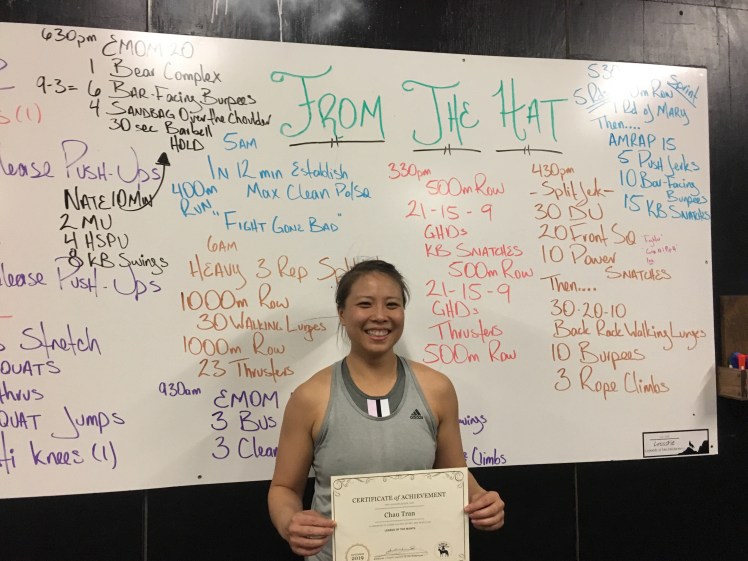 FROM THE HAT
630pm
EMOM 20
1 Bear Complex
9-3= 6 BAR-Facing Burpees
4 SANDBAG Over the Shoulder
30 sec Barbell
HOLD
(1)
lease PUSH-UPS
NATE 10 Min
2 MU
4 HSPU
8 KB Swings
lease PUSH-UPS
Stretch
QUATS
thrus
QUAT JUMPS
Hi KNEES (1)
5AM
IN 12 min Establish
Max Clean
400m
RUN
"FIGHT GONE BAD"
6AM
HEAVY 3 Rep
1000m Row
30 WALKING Lunges
1000m Row
23 Thrusters
930am
EMOM
3 Bus
3 Clean
wings
Climbs
330pm
500m Row
21-15-9
GHDs
KB SNATCHES
500m Row
21-15-9
GHDs
Thrusters
500m Row
430pm
-Split Jerk-
30 DU
20 Front SQ
10 Power
SNATCHES
Then....
30-20-10
Back Rack Walking Lunges
10 Burpees
3 Rope Climbs
Row
Sprint
1 Rd of MARY
Then....
AMRAP 15
5 Push Jerks
10 Bar-Facing
Burpees
15 KB SNatches
adidas
CERTIFICATE of ACHIEVEMENT
Chau Tran
2019